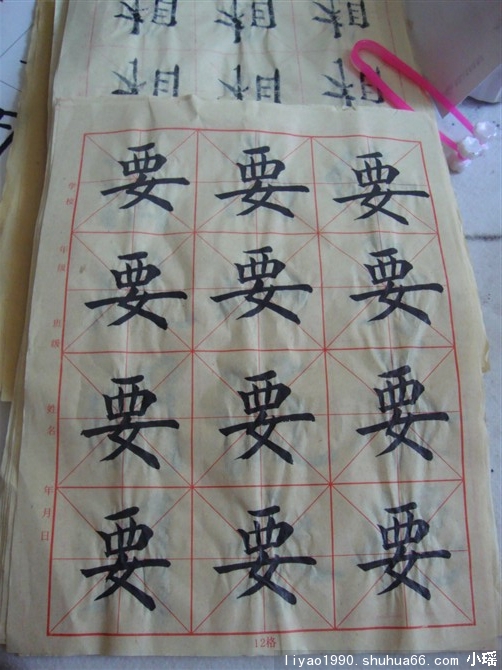 要 要 要
要 要 要
要 要 要
要 要 要
学校
年级
班级
姓名
年月日
12格
liyao1990.shuhua66.com 小瑶